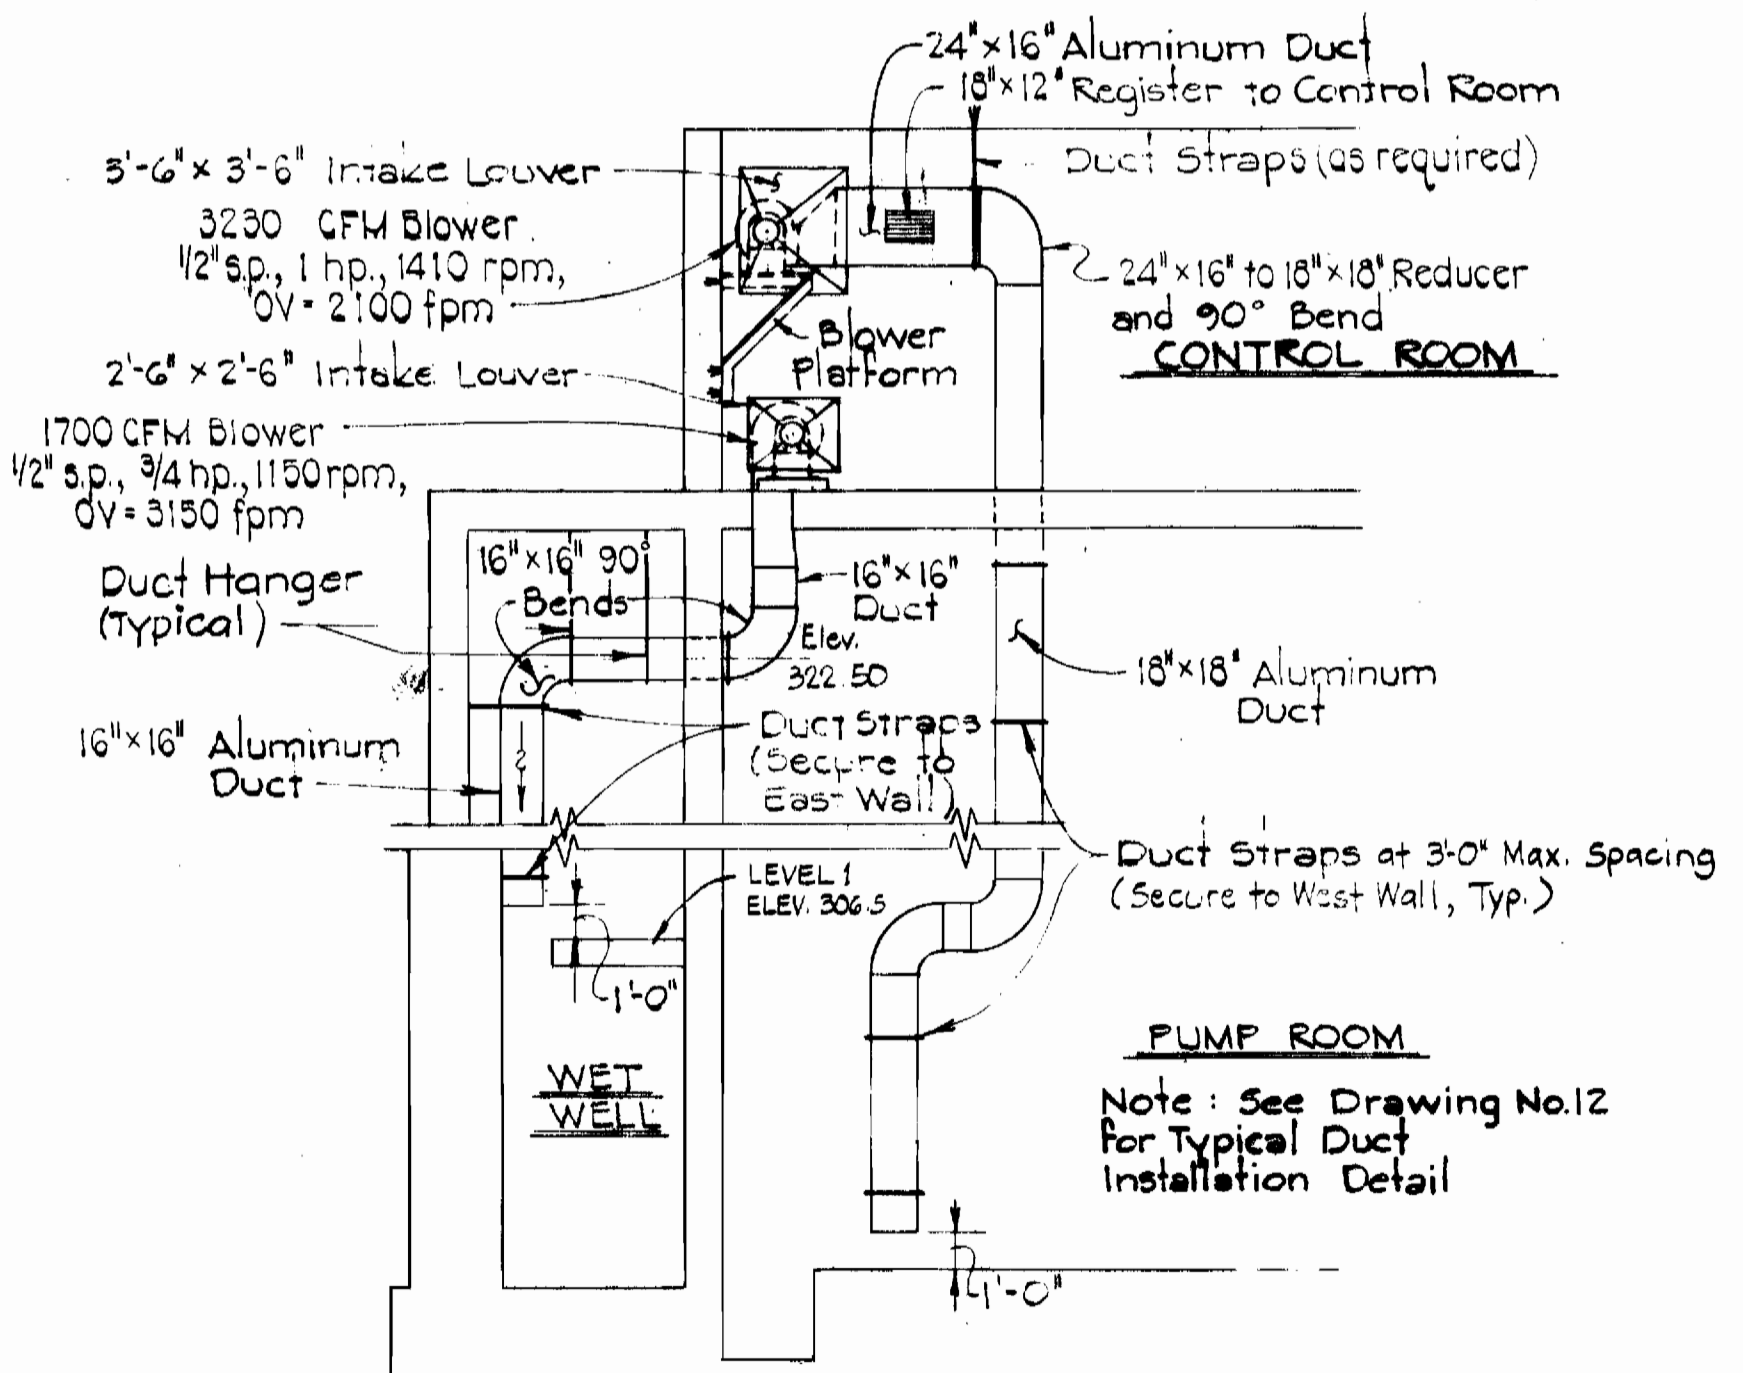 24"×16" Aluminum Duct
18"×12" Register to Control Room
Duct Straps (as required)
3'-6" × 3'-6" Intake Louver
3230 CFM Blower
1/2" s.p., 1 hp., 1410 rpm,
OV = 2100 fpm
24"×16" to 18"×18" Reducer
and 90° Bend
CONTROL ROOM
Blower
Platform
2'-6" × 2'-6" Intake Louver
1700 CFM Blower
1/2" s.p., 3/4 hp., 1150 rpm,
OV = 3150 fpm
16"×16" 90°
Bends
Duct Hanger
(Typical)
16"×16"
Duct
Elev.
322.50
18"×18" Aluminum
Duct
16"×16" Aluminum
Duct
Duct Straps
(Secure to
East Wall)
Duct Straps at 3'-0" Max. Spacing
(Secure to West Wall, Typ.)
LEVEL 1
ELEV. 306.5
1'-0"
WET
WELL
PUMP ROOM
Note : See Drawing No.12
for Typical Duct
Installation Detail
1'-0"